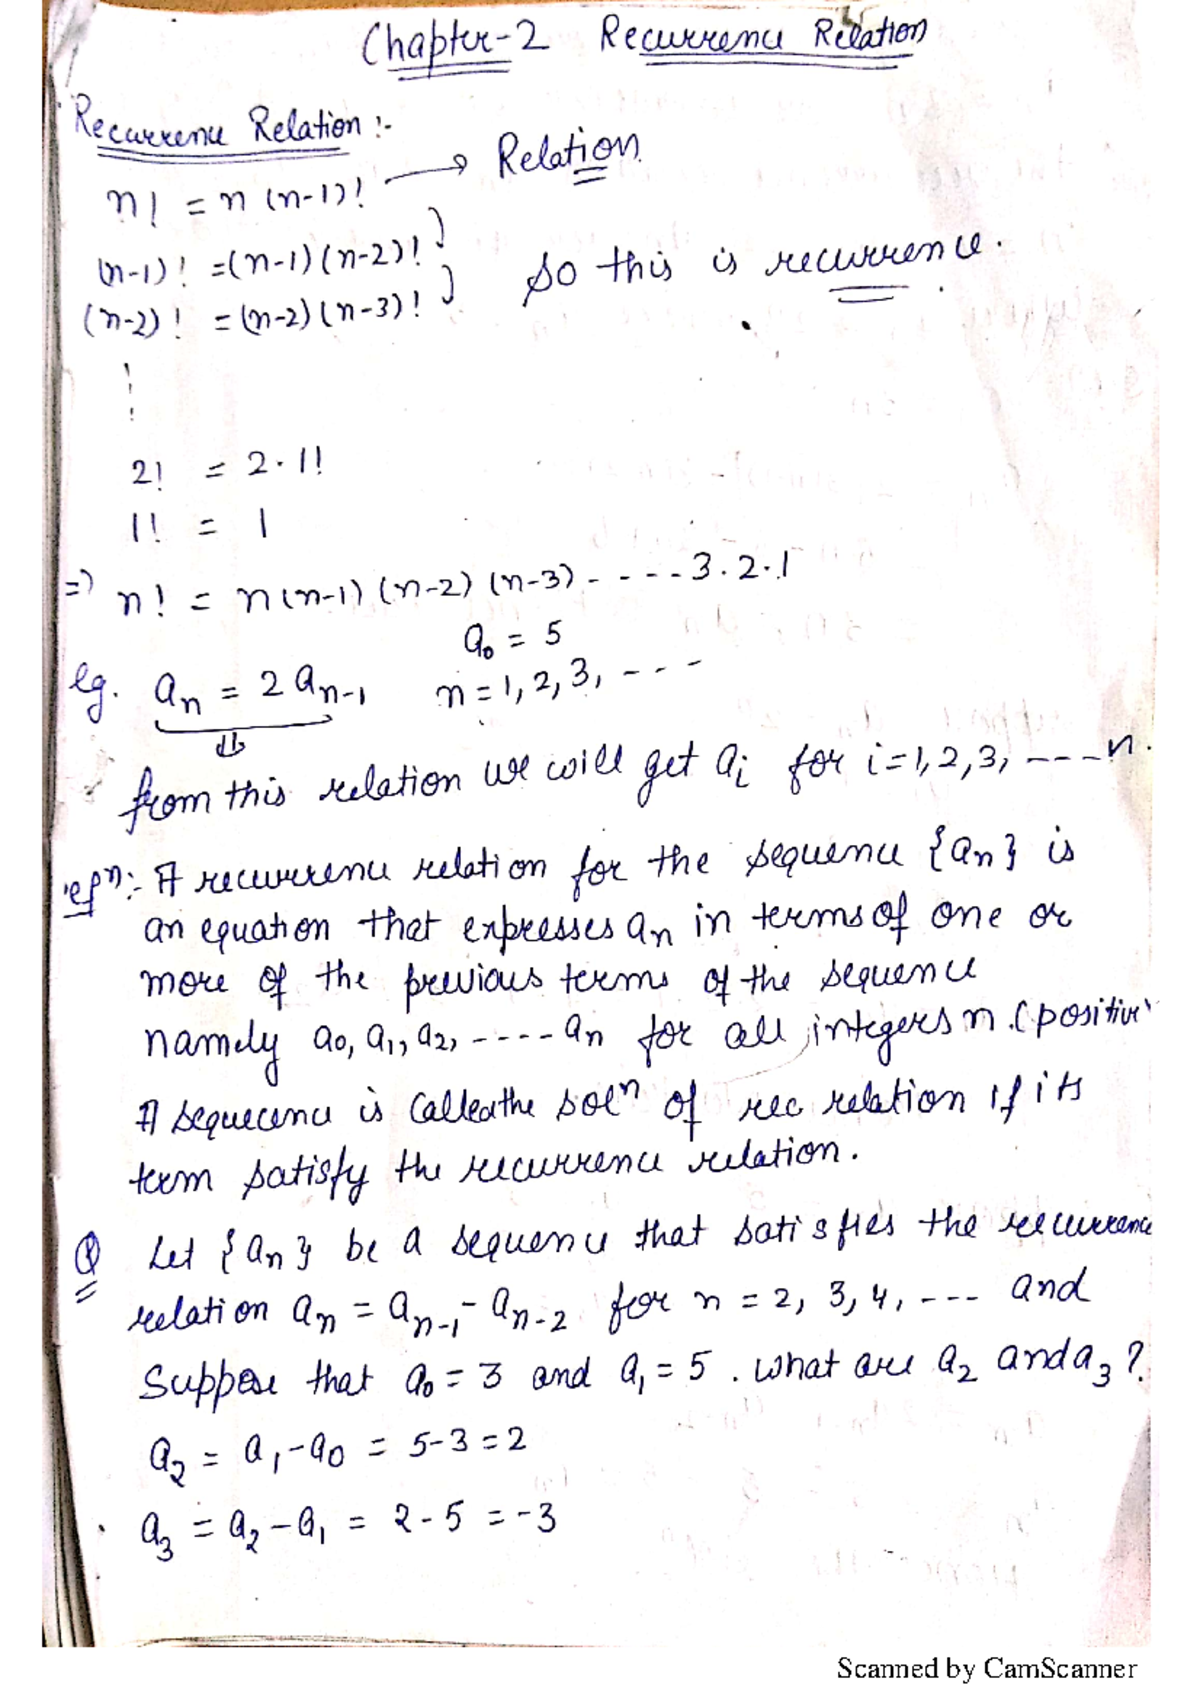 Chapter-2 Recurrence Relation
Recurrence Relation :-
n! = n (n-1)! → Relation
(n-1)! = (n-1)(n-2)!
(n-2)! = (n-2)(n-3)! So this is recurrence.
2! = 2·1!
1! = 1
=> n! = n(n-1)(n-2)(n-3)-----3.2.1
a₀ = 5
eg. aₙ = 2aₙ₋₁ n = 1, 2, 3, ---
from this relation we will get aᵢ for i=1,2,3, ----n.
efⁿ:- A recurrence relation for the sequence {aₙ} is
an equation that expresses aₙ in terms of one or
more of the previous terms of the sequence
namely a₀, a₁, a₂, -----aₙ for all integers n. (positive
A sequecence is called the solⁿ of rec relation if its
term satisfy the recurrence relation.
Q Let {aₙ} be a sequence that satisfies the recurrence
relation aₙ = aₙ₋₁ - aₙ₋₂ for n = 2, 3, 4, --- and
Suppose that a₀ = 3 and a₁ = 5. What are a₂ and a₃?
a₂ = a₁ - a₀ = 5-3 = 2
a₃ = a₂ - a₁ = 2 - 5 = -3
Scanned by CamScanner